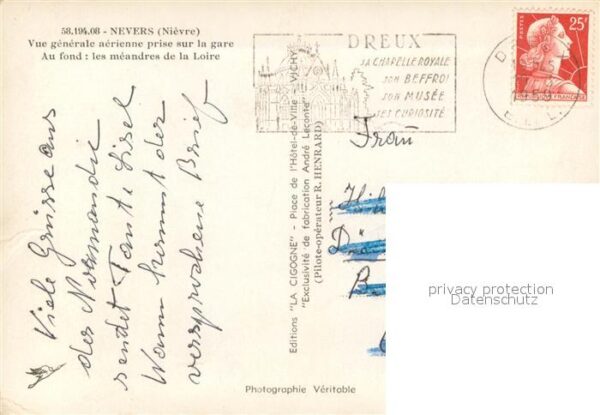 58.194.08 - NEVERS (Nièvre)
Vue générale aérienne prise sur la gare
Au fond : les méandres de la Loire
DREUX
SA CHAPELLE ROYALE
SON BEFFROI
SON MUSÉE
SES CURIOSITÉS
POSTES
25F
Viele Grüsse aus
der Normandie
sendet Tante Lisel
Wann kommt der
versprochene Brief
Editions "LA CIGOGNE" - Place de l'Hôtel-de-Ville - VICHY
"Exclusivité de fabrication André Leconte"
(Pilote-opérateur R. HENRARD)
Frau
privacy protection
Datenschutz
Photographie Véritable